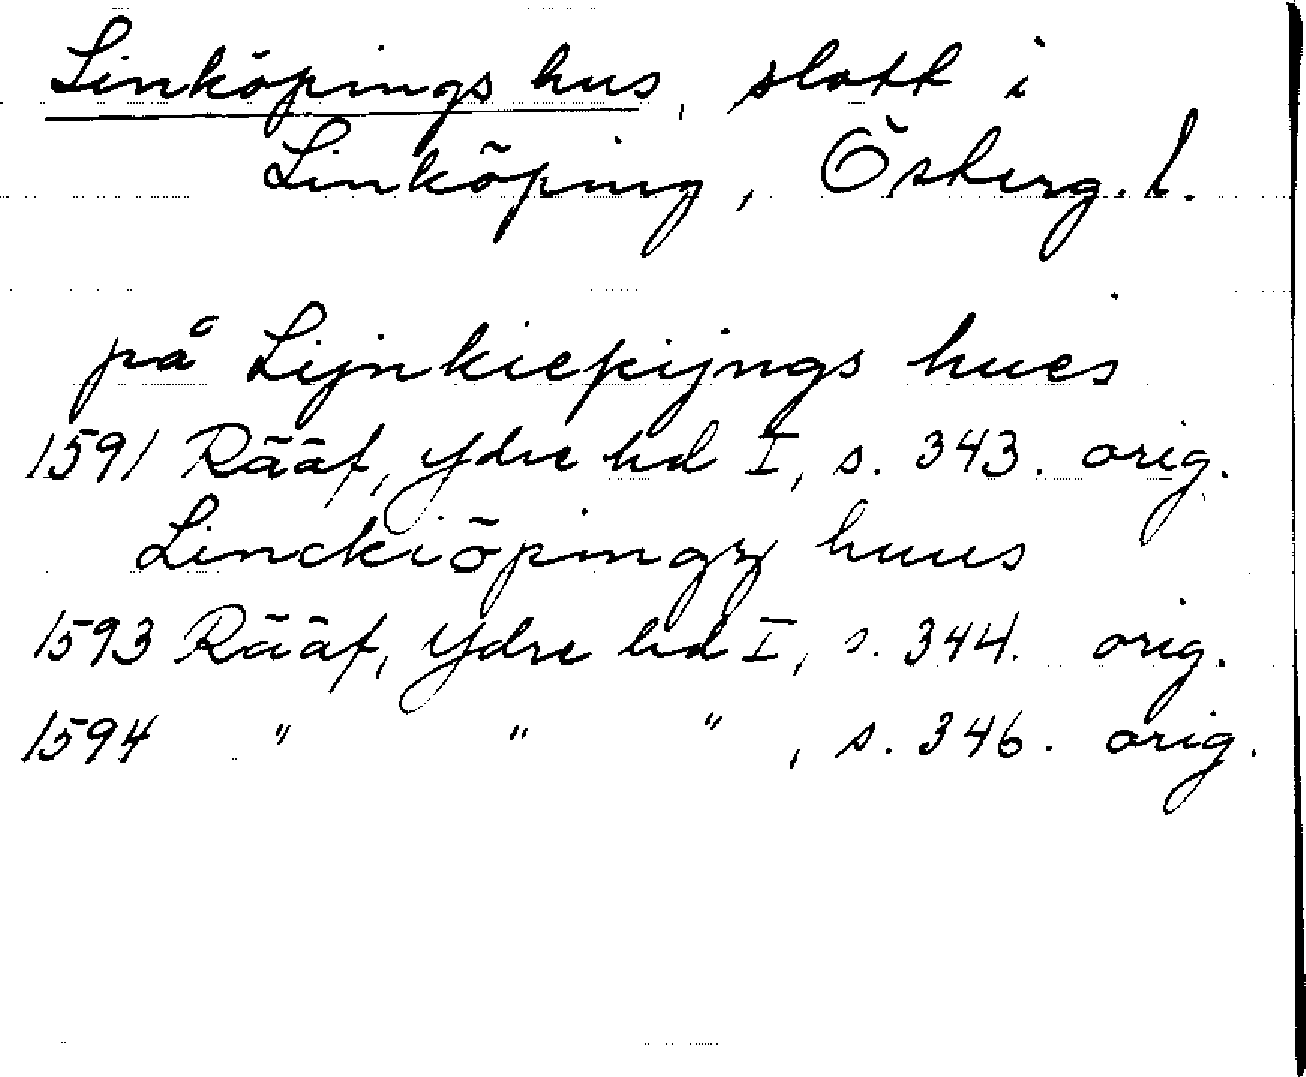 Linköpings hus, slott i
Linköping, Österg. l.
på Lijnkiepijngs hues
1591 Rääf, Ydre hd I, s. 343. orig.
Linckiöpingz huus
1593 Rääf, Ydre hd I, s. 344. orig.
1594 " " " , s. 346. orig.